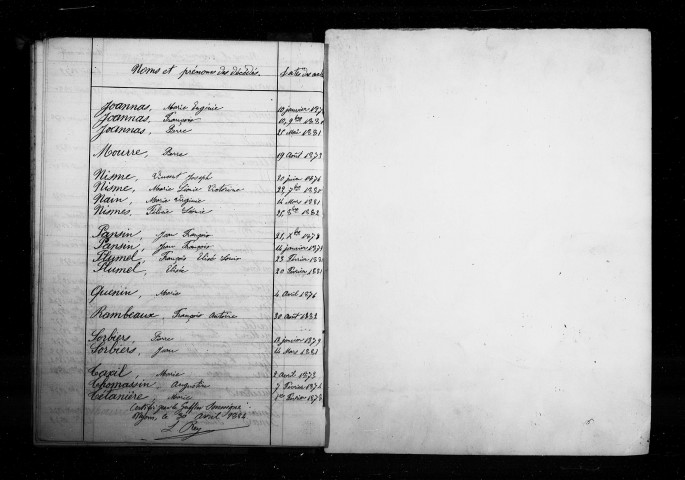 Noms et prénoms des décédés. Dates des
Joannas, Marie Eugénie 10 janvier
Joannas, François 10, 9bre 1881
Joannas, Pierre 21 Mai 1881
Mourre, Pierre 19 Août 1873
Nisme, Vincent Joseph 20 juin 1876
Nisme, Marie Léonie Victorine 22, 7bre 1880
Nain, Marie Virginie 14 Mars 1881
Nismes, Félicie Léonie 1882
Pansin, Jean François 21, Xbre 1878
Pansin, Jean François 14 janvier
Plumel, François Elisé Louis 23 Février
Plumel, Elisée 20 Février 1881
Quenin, Marie 4 Avril 1876
Rambeaux, François Antoine 30 Août 1882
Sorbiers, Pierre 12 janvier 1879
Sorbiers, Jean 14 Mars 1881
Taxil, Marie 2 Avril 1873
Thomassin, Augustin 7 Février 1874
Tetanière, Marie 1er Février 1878
Certifié par le Greffier Soussigné
le 30 Avril